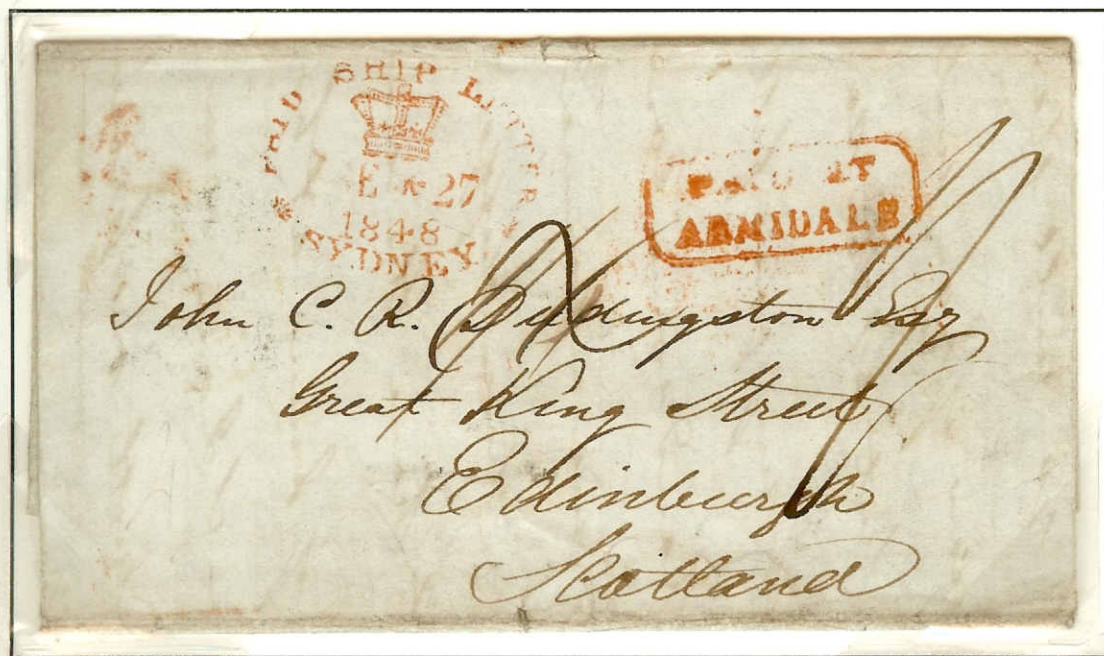 PAID SHIP LETTER
27
1848
SYDNEY
PAID AT
ARMIDALE
John C. R. Buddingston Esq
Great King Street
Edinburgh
Scotland